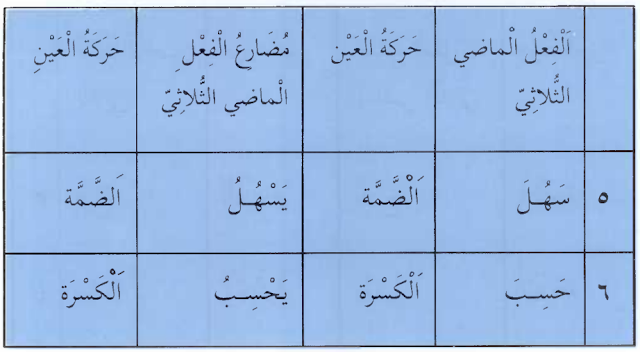 اَلْفِعْلُ الْماضي
الثُّلاثِيّ
حَرَكَةُ الْعَيْن
مُضَارِعُ الْفِعْلِ
الْماضي الثُّلاثِيّ
حَرَكَةُ الْعَيْنِ
٥ سَهُـلَ اَلْضَّمَّة يَسْهُـلُ اَلضَّمَّة
٦ حَسِـبَ اَلْكَسْرَة يَحْسِـبُ اَلْكَسْرَة